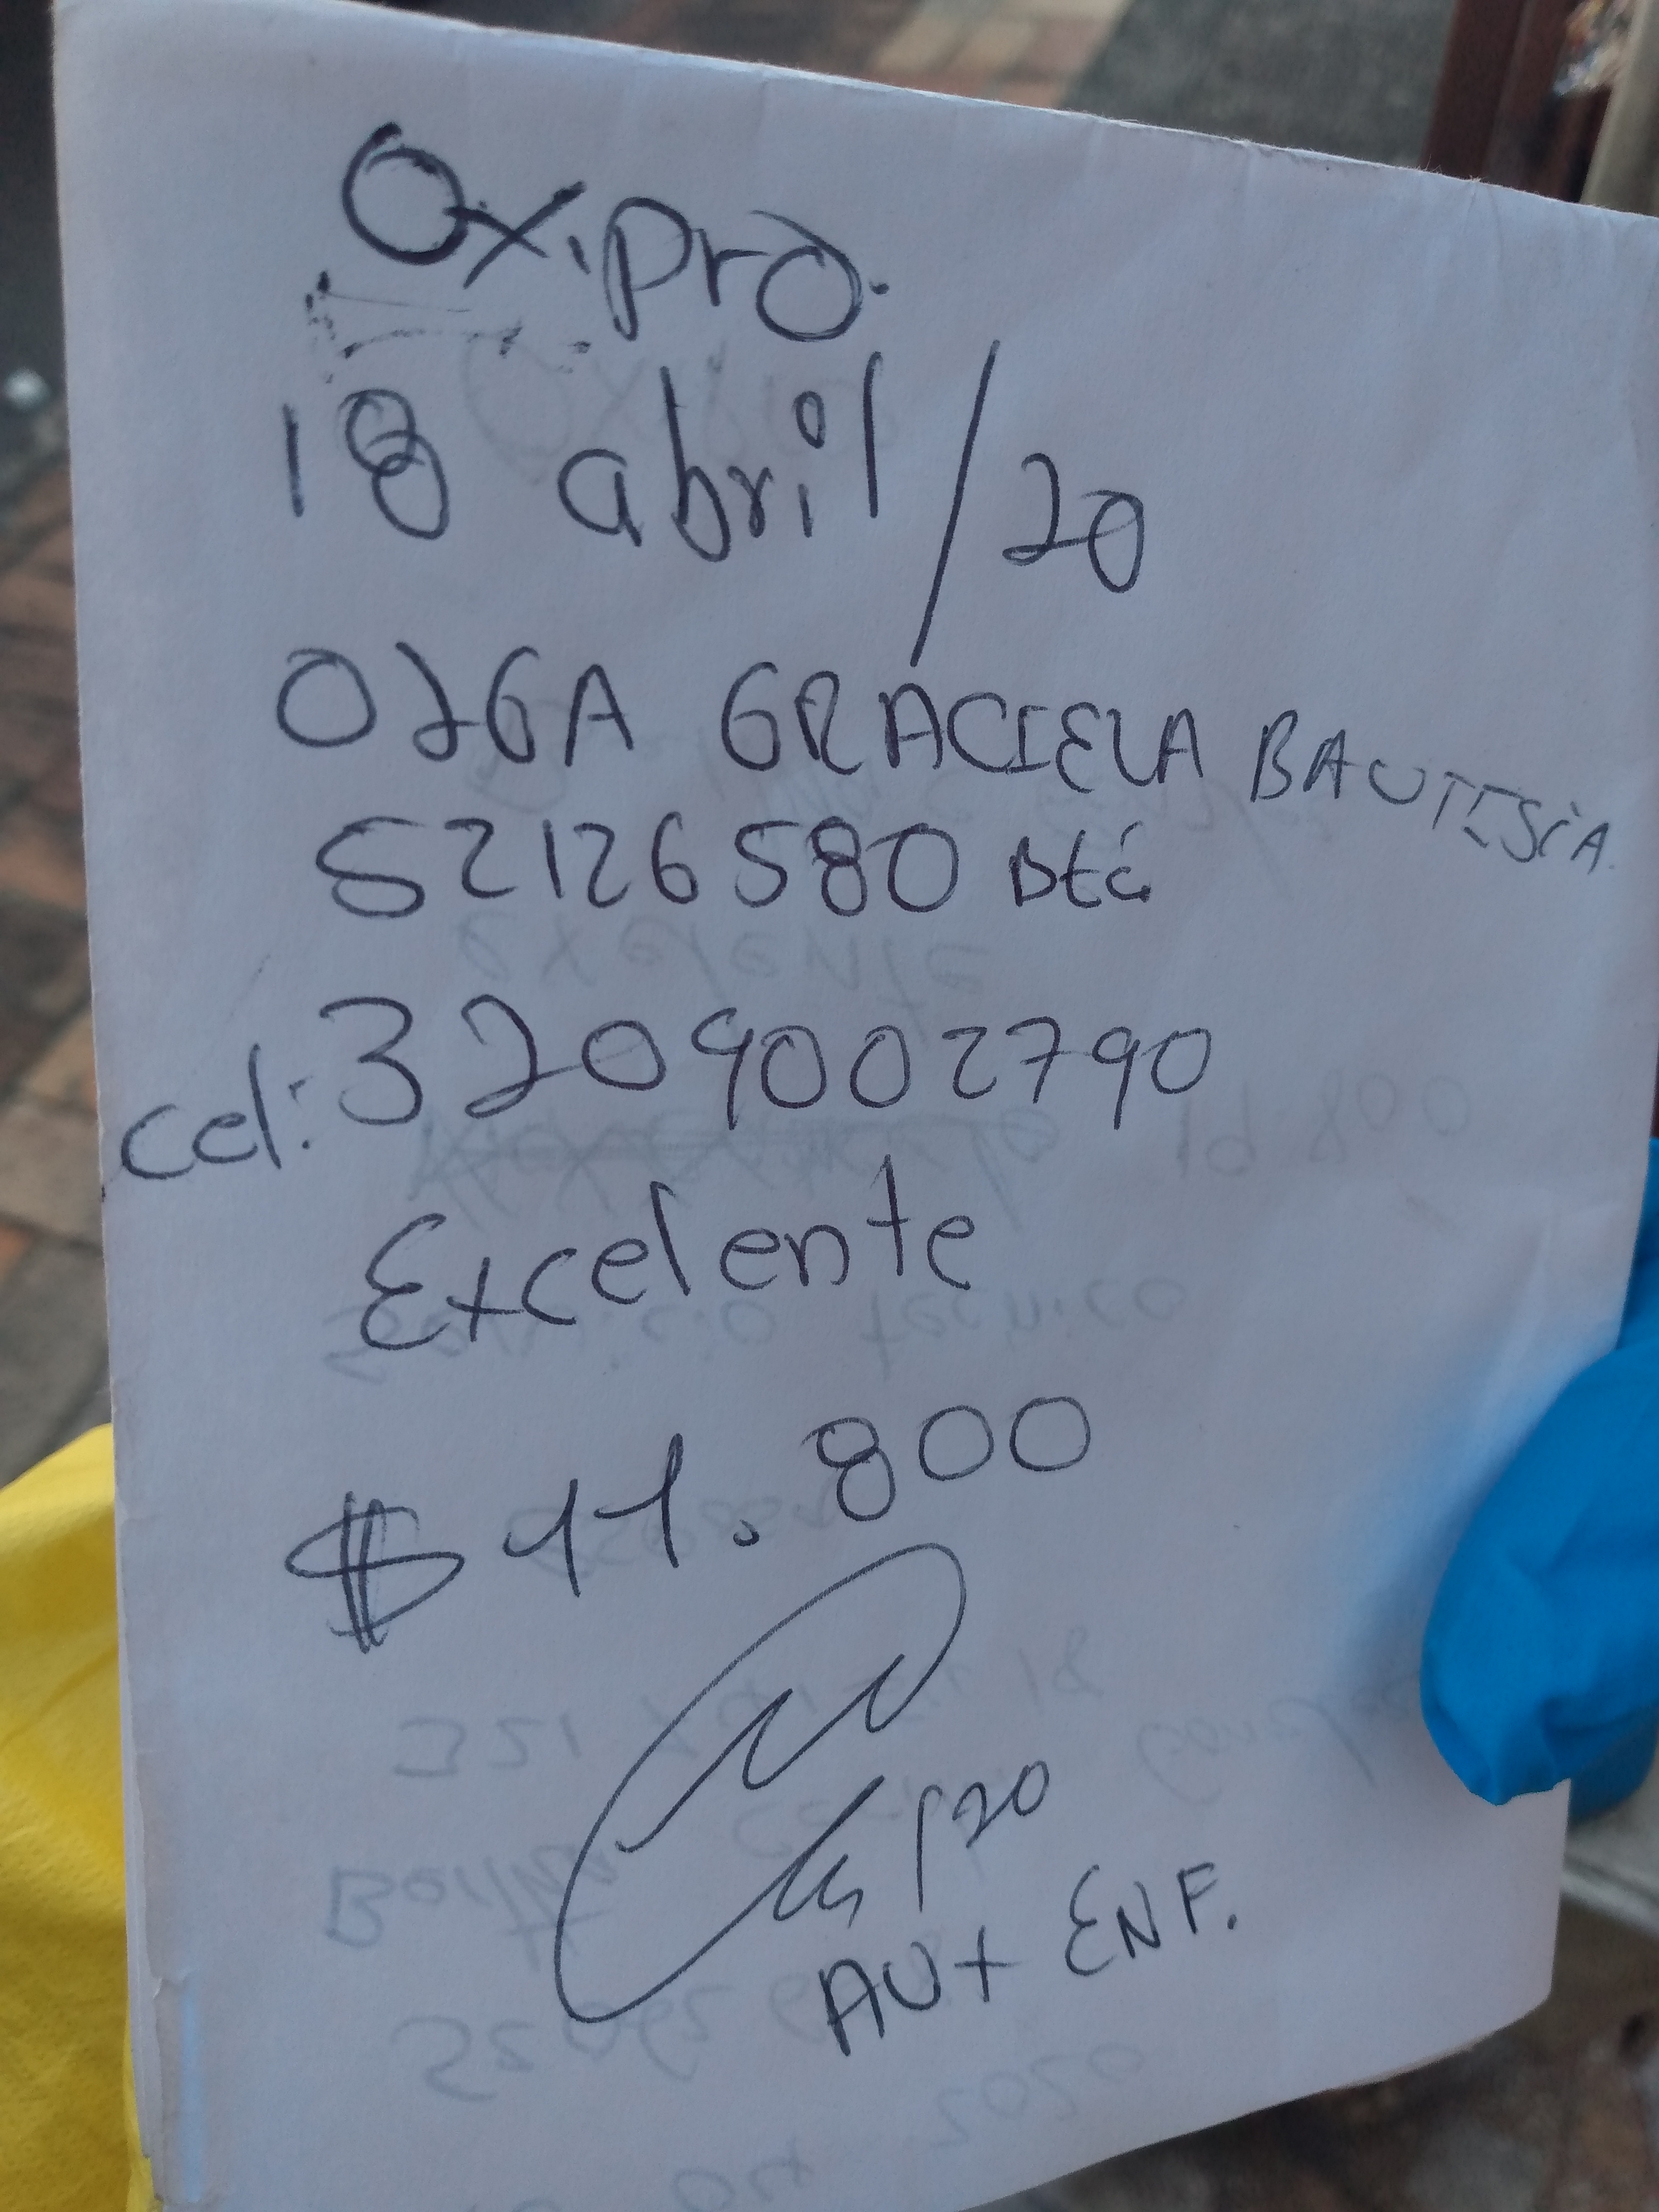 Oxipro.
18 abril/20
OLGA GRACIELA BAUTISTA.
52126580 Btá
cel: 3209002790
Excelente
$ 44.800
AUX ENF.